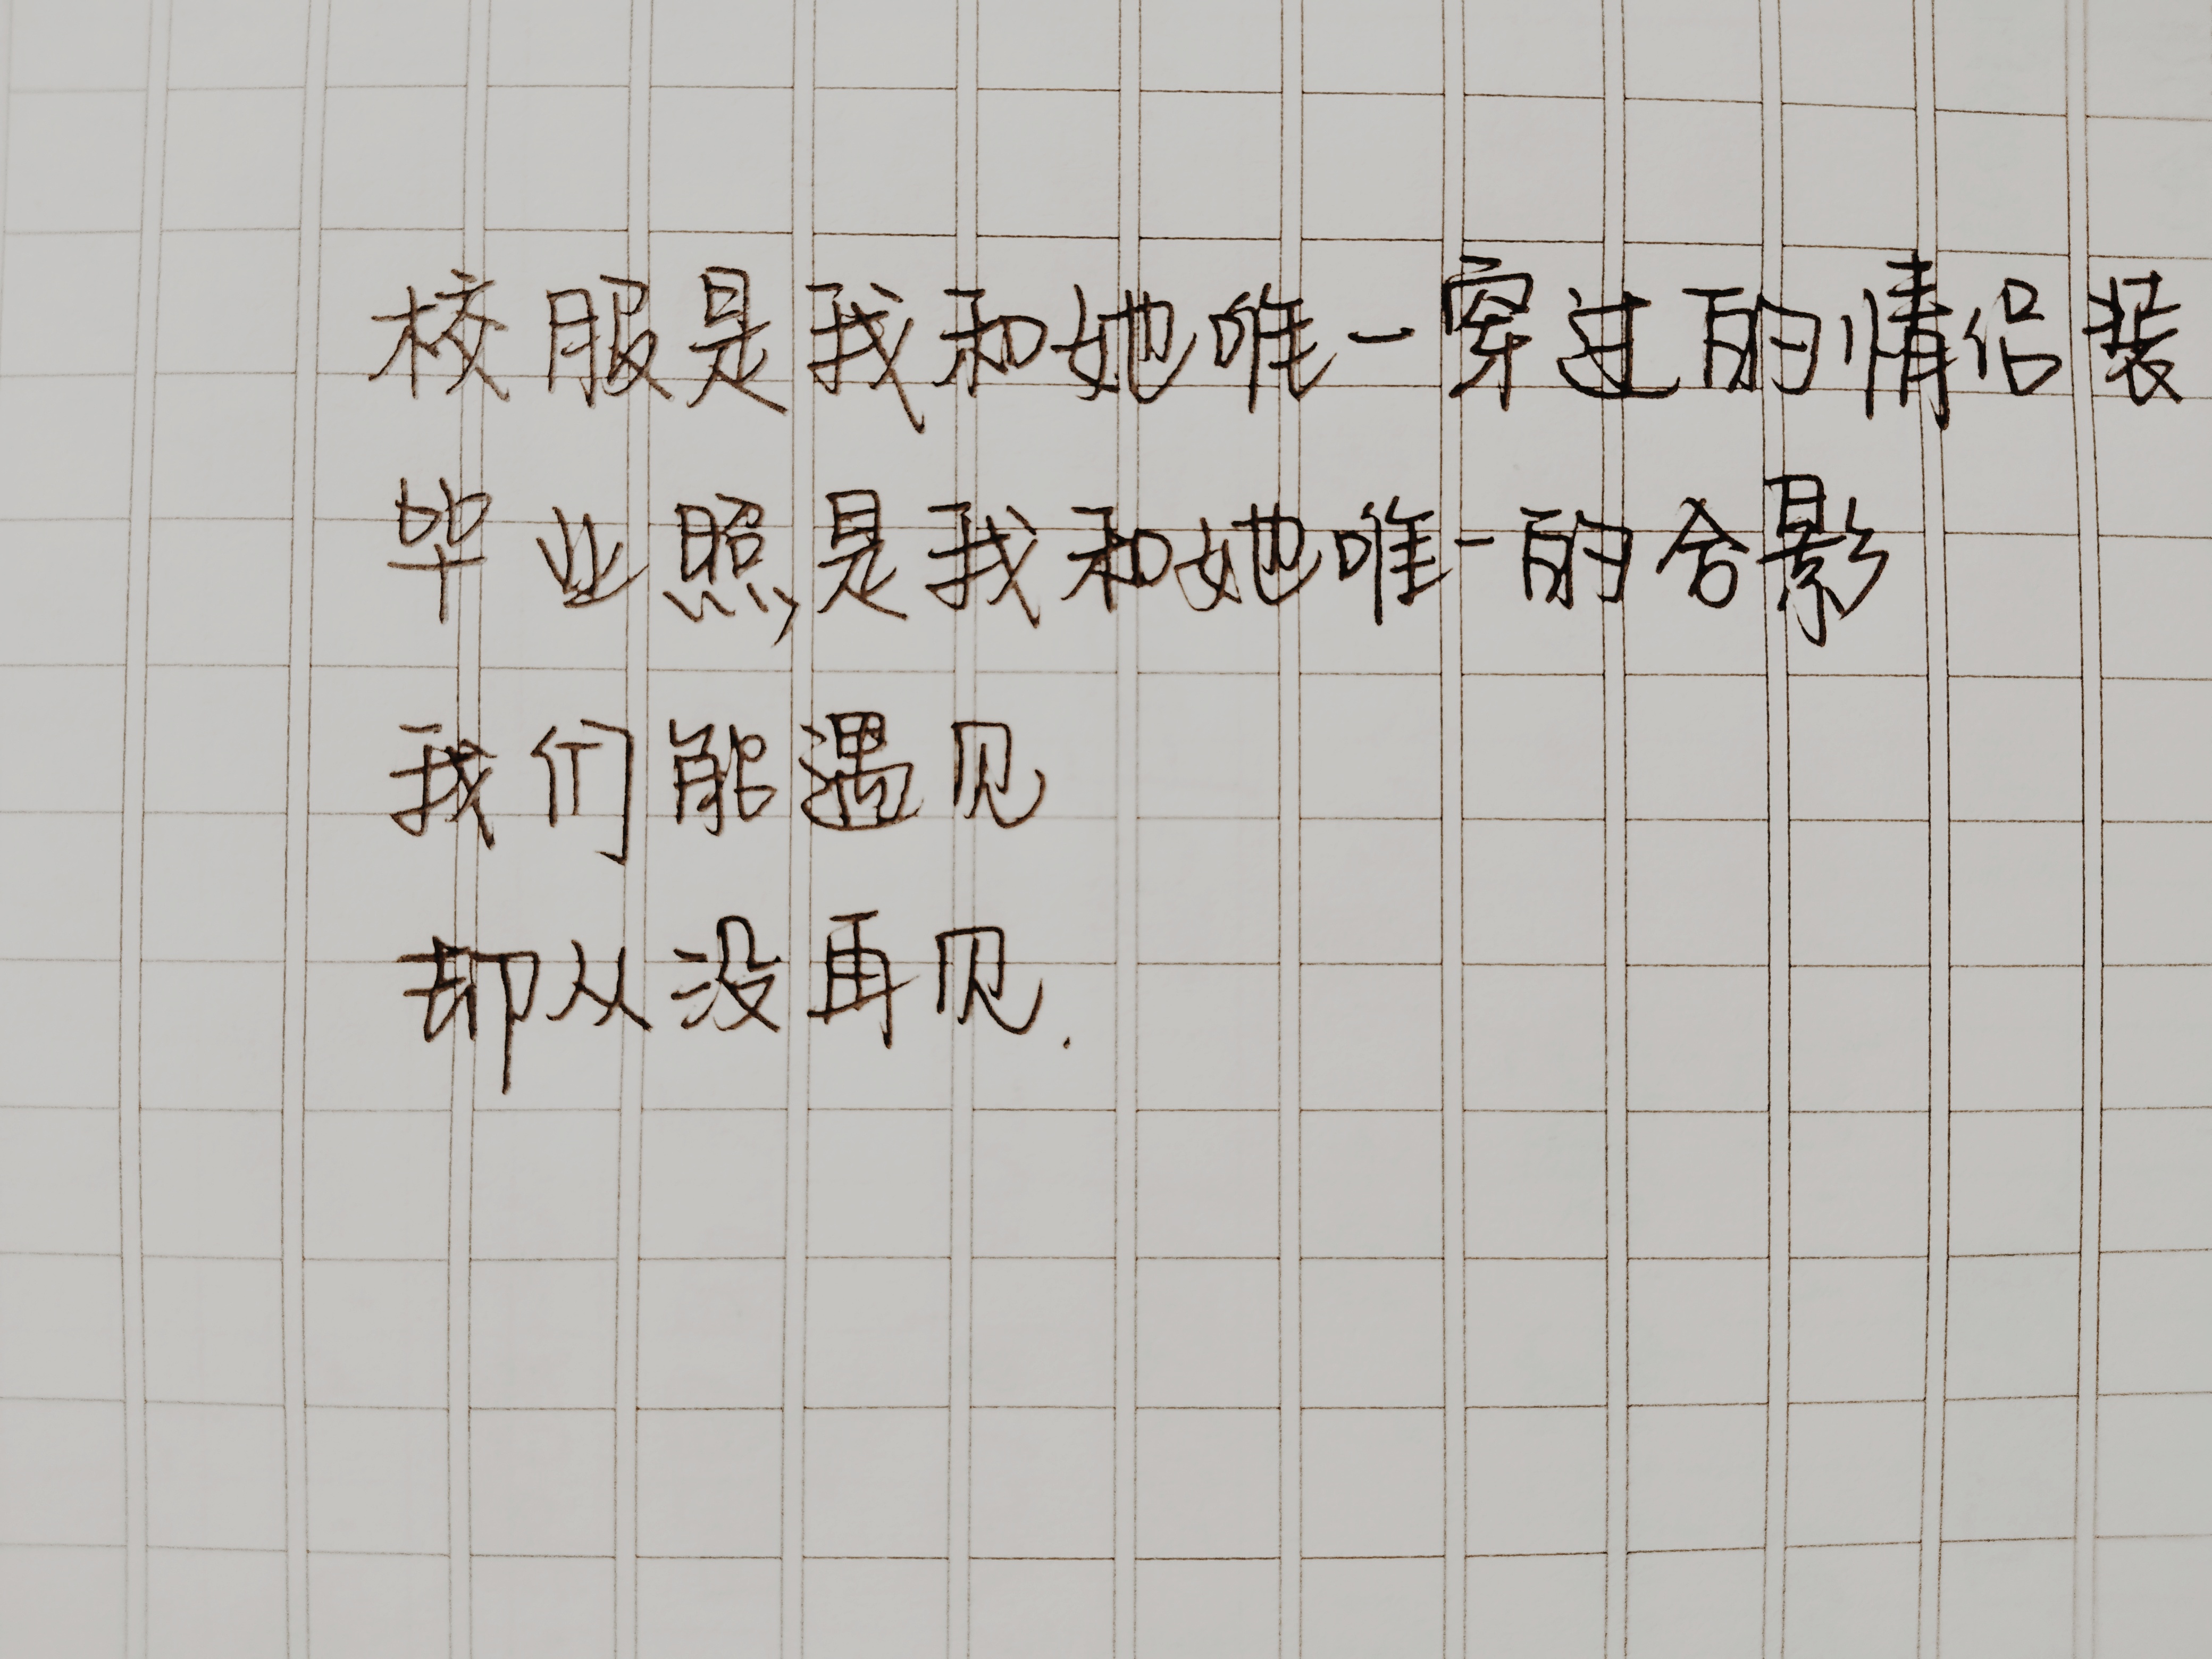 校服是我和她唯一穿过的情侣装
毕业照是我和她唯一的合影
我们能遇见
却从没再见.